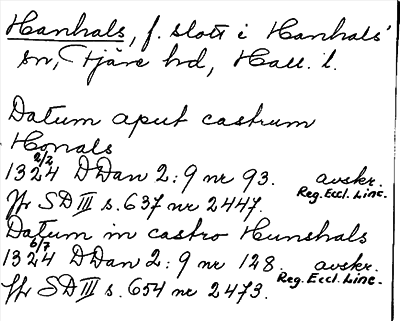 Hanhals, f. slott i Hanhals'
sn, Fjäre hd, Hall. l.
Datum aput castrum
Honals
1324 2/2 DDan 2:9 nr 93. avskr.
Reg. Eccl. Linc.
Jfr SD III s. 637 nr 2447.
Datum in castro Hunshals
1324 6/7 DDan 2:9 nr 128. avskr.
Reg. Eccl. Linc.
Jfr SD III s. 654 nr 2473.